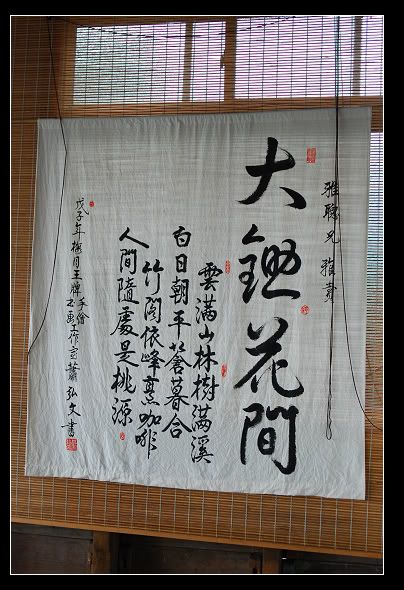 雅聰兄 雅賞
大鋤花間
雲滿山林樹滿溪
白日朝平蒼暮合
竹閣依峰熏咖啡
人間隨處是桃源
戊子年梅月王牌手繪書畫工作室蕭弘文書